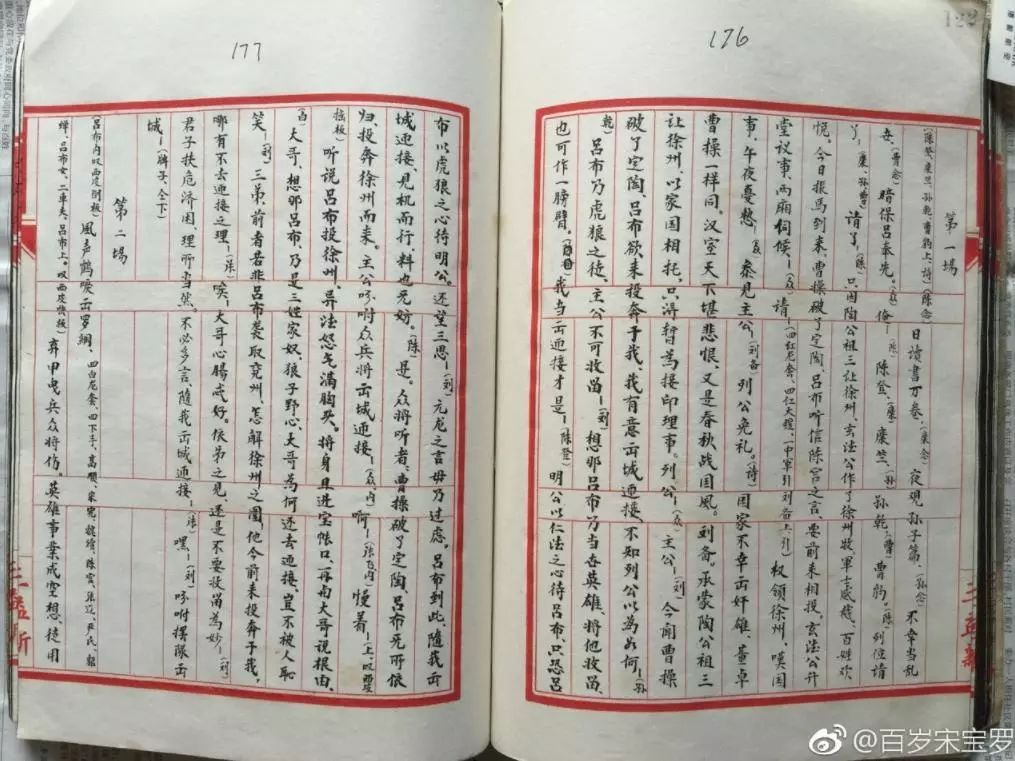 176
122
第一場
(陈登、糜竺、孙乾、曹豹上，诗)(陈念) 日读书万卷，(糜念) 夜观孙子篇，(孙念) 不幸当乱
世，(曹念) 暗保吕奉先。(众) 俺—(陈) 陈登、(糜) 糜竺、(孙) 孙乾、(曹) 曹豹。(陈) 列位请
了，(糜、孙、曹) 请了，(陈) 只因陶公祖三让徐州，玄德公作了徐州牧，軍士感戴，百姓欢
悦。今日报馬到来，曹操破了定陶，吕布听信陈宫之言，要前来相投，玄德公升
堂议事，两廂伺候，(众) 请！(四红龙套、四红大铠、一中軍引刘备上引) 权领徐州，嘆国
事，午夜憂愁。(众) 参见主公，(刘备) 列公免礼。(诗) 国家不幸出奸雄，董卓
曹操一样同。汉室天下堪悲恨，又是春秋战国风。刘备。承蒙陶公祖三
让徐州，以家国相托，只得暂為接印理事。列公！(众) 主公！(刘) 今闻曹操
破了定陶，吕布欲来投奔于我，我有意出城迎接，不知列公以為如何，(孙
乾) 吕布乃虎狼之徒，主公不可收留！(刘) 想那吕布乃当世英雄，将他收留，
也可作一膀臂。我当出迎接才是！(陈登) 明公以仁德之心待吕布，只恐吕
177
布以虎狼之心待明公。还望三思！(刘) 元龙之言毋乃过虑。吕布到此，随我出
城迎接，见机而行，料也无妨。(陈) 是。众将听者，曹操破了定陶，吕布无所依
归，投奔徐州而来。主公吩咐众兵将出城迎接。(众，内) 啊！(张飞内) 慢着！(上，以西皮
摇板) 听说吕布投徐州，异法怒气满胸头。将身且进宝帐口，再向大哥说根由。
(白) 大哥，想那吕布，乃是三姓家奴，狼子野心，大哥為何还去迎接，豈不被人恥
笑！(刘) 三弟，前者若非吕布袭取兖州，怎解徐州之围，他今前来投奔于我，
哪有不去迎接之理！(张) 唉！大哥心腸忒好。依弟之见，还是不要收留為妙！(刘)
君子扶危济困，理所当然，不必多言，随我出城迎接！(张) 嘿！(刘) 吩咐摆隊出
城！(牌子，仝下)
第二場
(吕布内以西皮倒板) 風声鹤唳出罗網，(四白龙套、四下手、高順、宋宪、魏續、陈宫、张辽、严氏、貂
蝉、吕布女、二車夫、吕布上。以西皮快板) 弃甲曳兵众将伤。英雄事業成空想，徒用
@百岁宋宝罗